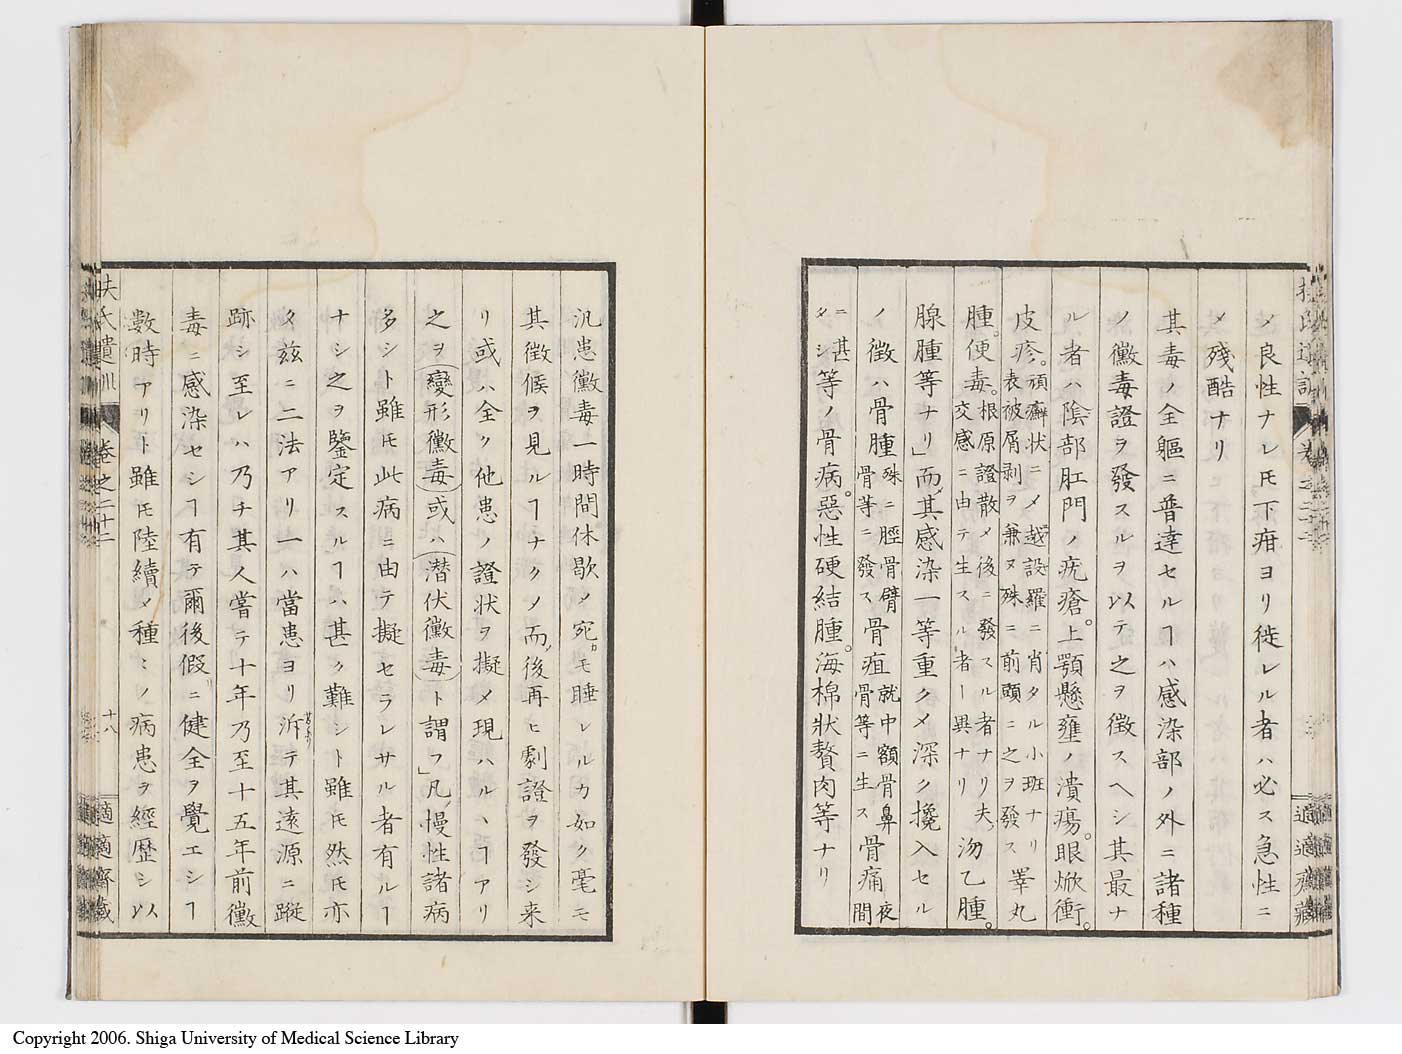 メ良性ナレ𪜈下疳ヨリ徙レル者ハ必ス急性ニ
メ殘酷ナリ
其毒ノ全軀ニ普達セルヿハ感染部ノ外ニ諸種
ノ黴毒證ヲ發スルヲ以テ之ヲ徴スヘシ其最ナ
ル者ハ陰部肛門ノ疣瘡。上顎懸壅ノ潰瘍。眼焮衝。
皮疹。頑癬状ニメ越設羅ニ肖タル小班ナリ
表被屑剥ヲ兼ヌ殊ニ前顱ニ之ヲ發ス
睾丸
腫。便毒。根原證散メ後ニ發スル者ナリ夫、
交感ニ由テ生スル者ー異ナリ
沕乙腫。
腺腫等ナリ」而其感染一等重クメ深ク攙入セル
ノ徴ハ骨腫殊ニ脛骨臂
骨等ニ發ス
骨疽就中額骨鼻
骨等ニ生ス
骨痛夜
間
ニ甚
タシ
等ノ骨病。惡性硬結腫。海棉狀贅肉等ナリ
扶氏遺訓 卷之二十二 十八 適適齋藏
汎患黴毒一時間休歇メ宛モ睡レルカ如ク毫モ
其徴候ヲ見ルヿナクメ而後再ヒ劇證ヲ發シ来
リ或ハ全ク他患ノ證状ヲ擬メ現ハルヽヿアリ
之ヲ(變形黴毒)或ハ(潜伏黴毒)ト謂フ」凡慢性諸病
多シト雖𪜈此病ニ由テ擬セラレサル者有ルヿ
ナシ之ヲ鑒定スルヿハ甚タ難シト雖𪜈然𪜈亦
タ兹ニ二法アリ一ハ當患ヨリ泝テ其遠源ニ蹤
跡シ至レハ乃チ其人嘗テ十年乃至十五年前黴
毒ニ感染セシヿ有テ爾後假ニ健全ヲ覺エシヿ
數時アリト雖𪜈陸續メ種〻ノ病患ヲ經歴シ以